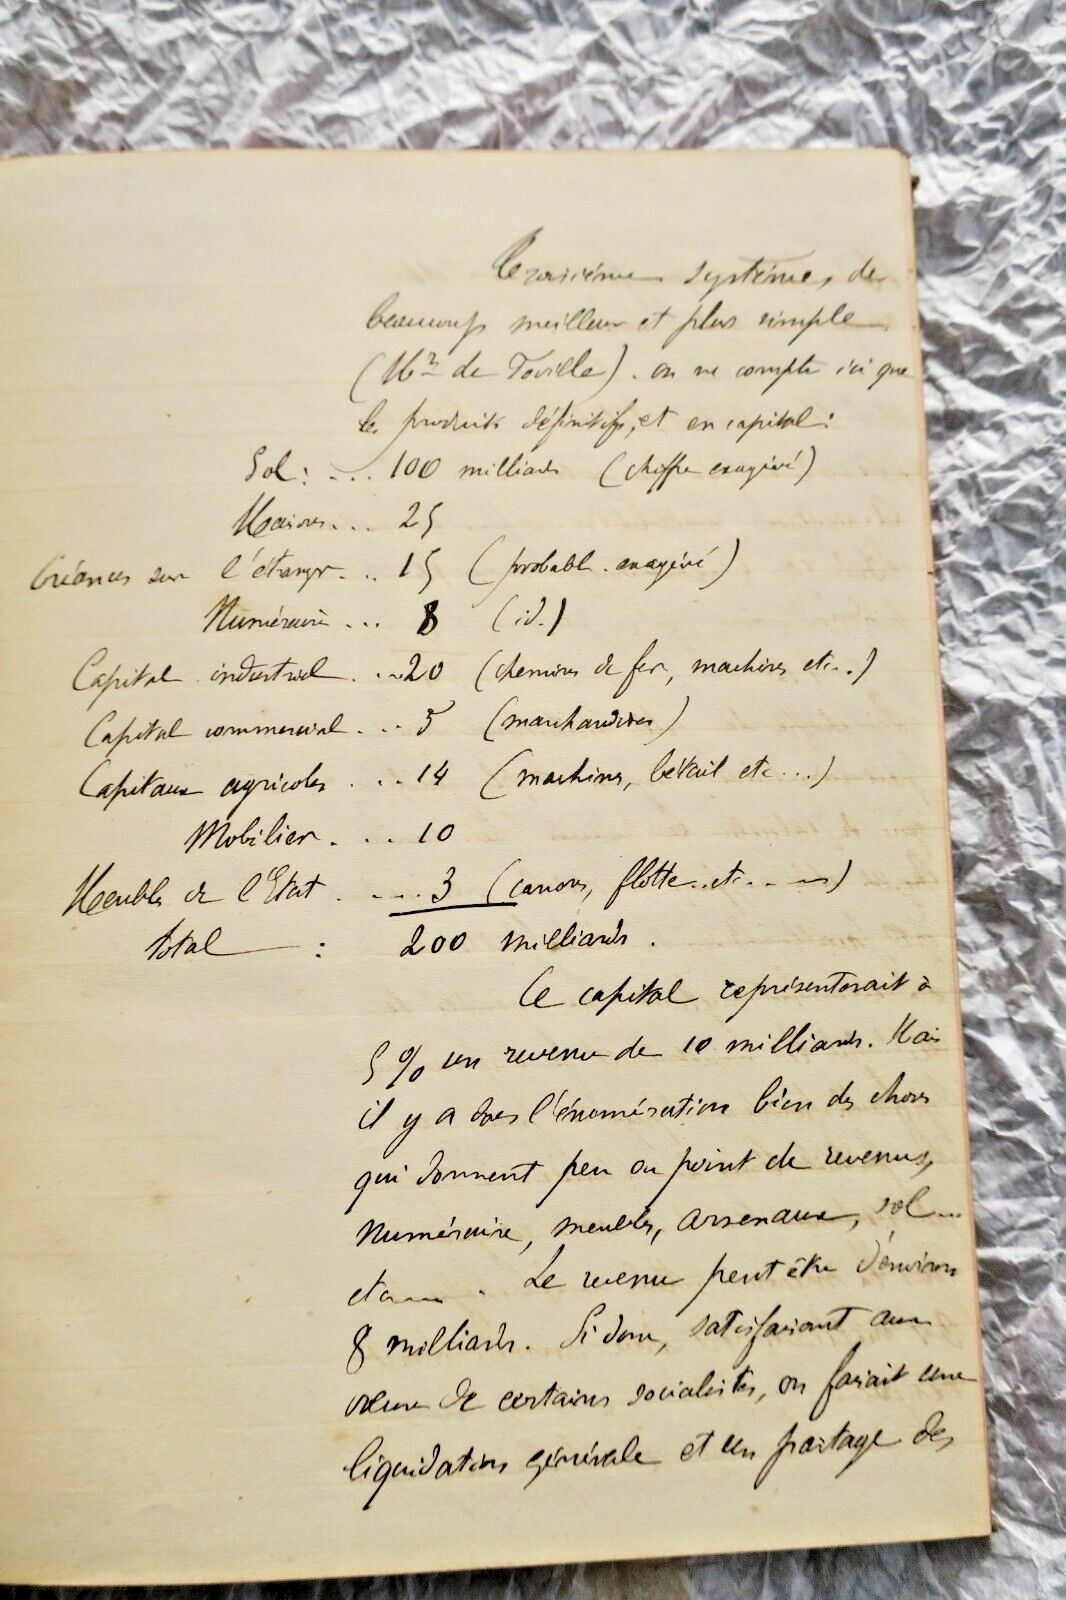 Troisième système, de
beaucoup meilleur et plus simple
(Mr de Foville). on ne compte ici que
les produits définitifs, et en capital:
Sol: ... 100 milliards (chiffre exagéré)
Maisons... 25
Créances sur l'étranger... 15 (probabl. exagéré)
Numéraire ... 8 (id.)
Capital industriel ... 20 (chemins de fer, machines etc...)
Capital commercial ... 5 (marchandises)
Capitaux agricoles ... 14 (machines, bétail etc...)
Mobilier ... 10
Meubles de l'Etat ... 3 (canons, flotte...etc...)
total : 200 milliards.
Ce capital représenterait à
5 % un revenu de 10 milliards. Mais
il y a dans l'énumération bien des choses
qui donnent peu ou point de revenus,
Numéraire, meubles, arsenaux, sol...
etc... . Le revenu peut être d'environ
8 milliards. Si donc, satisfaisant aux
vœux de certains socialistes, on faisait une
liquidation générale et un partage des